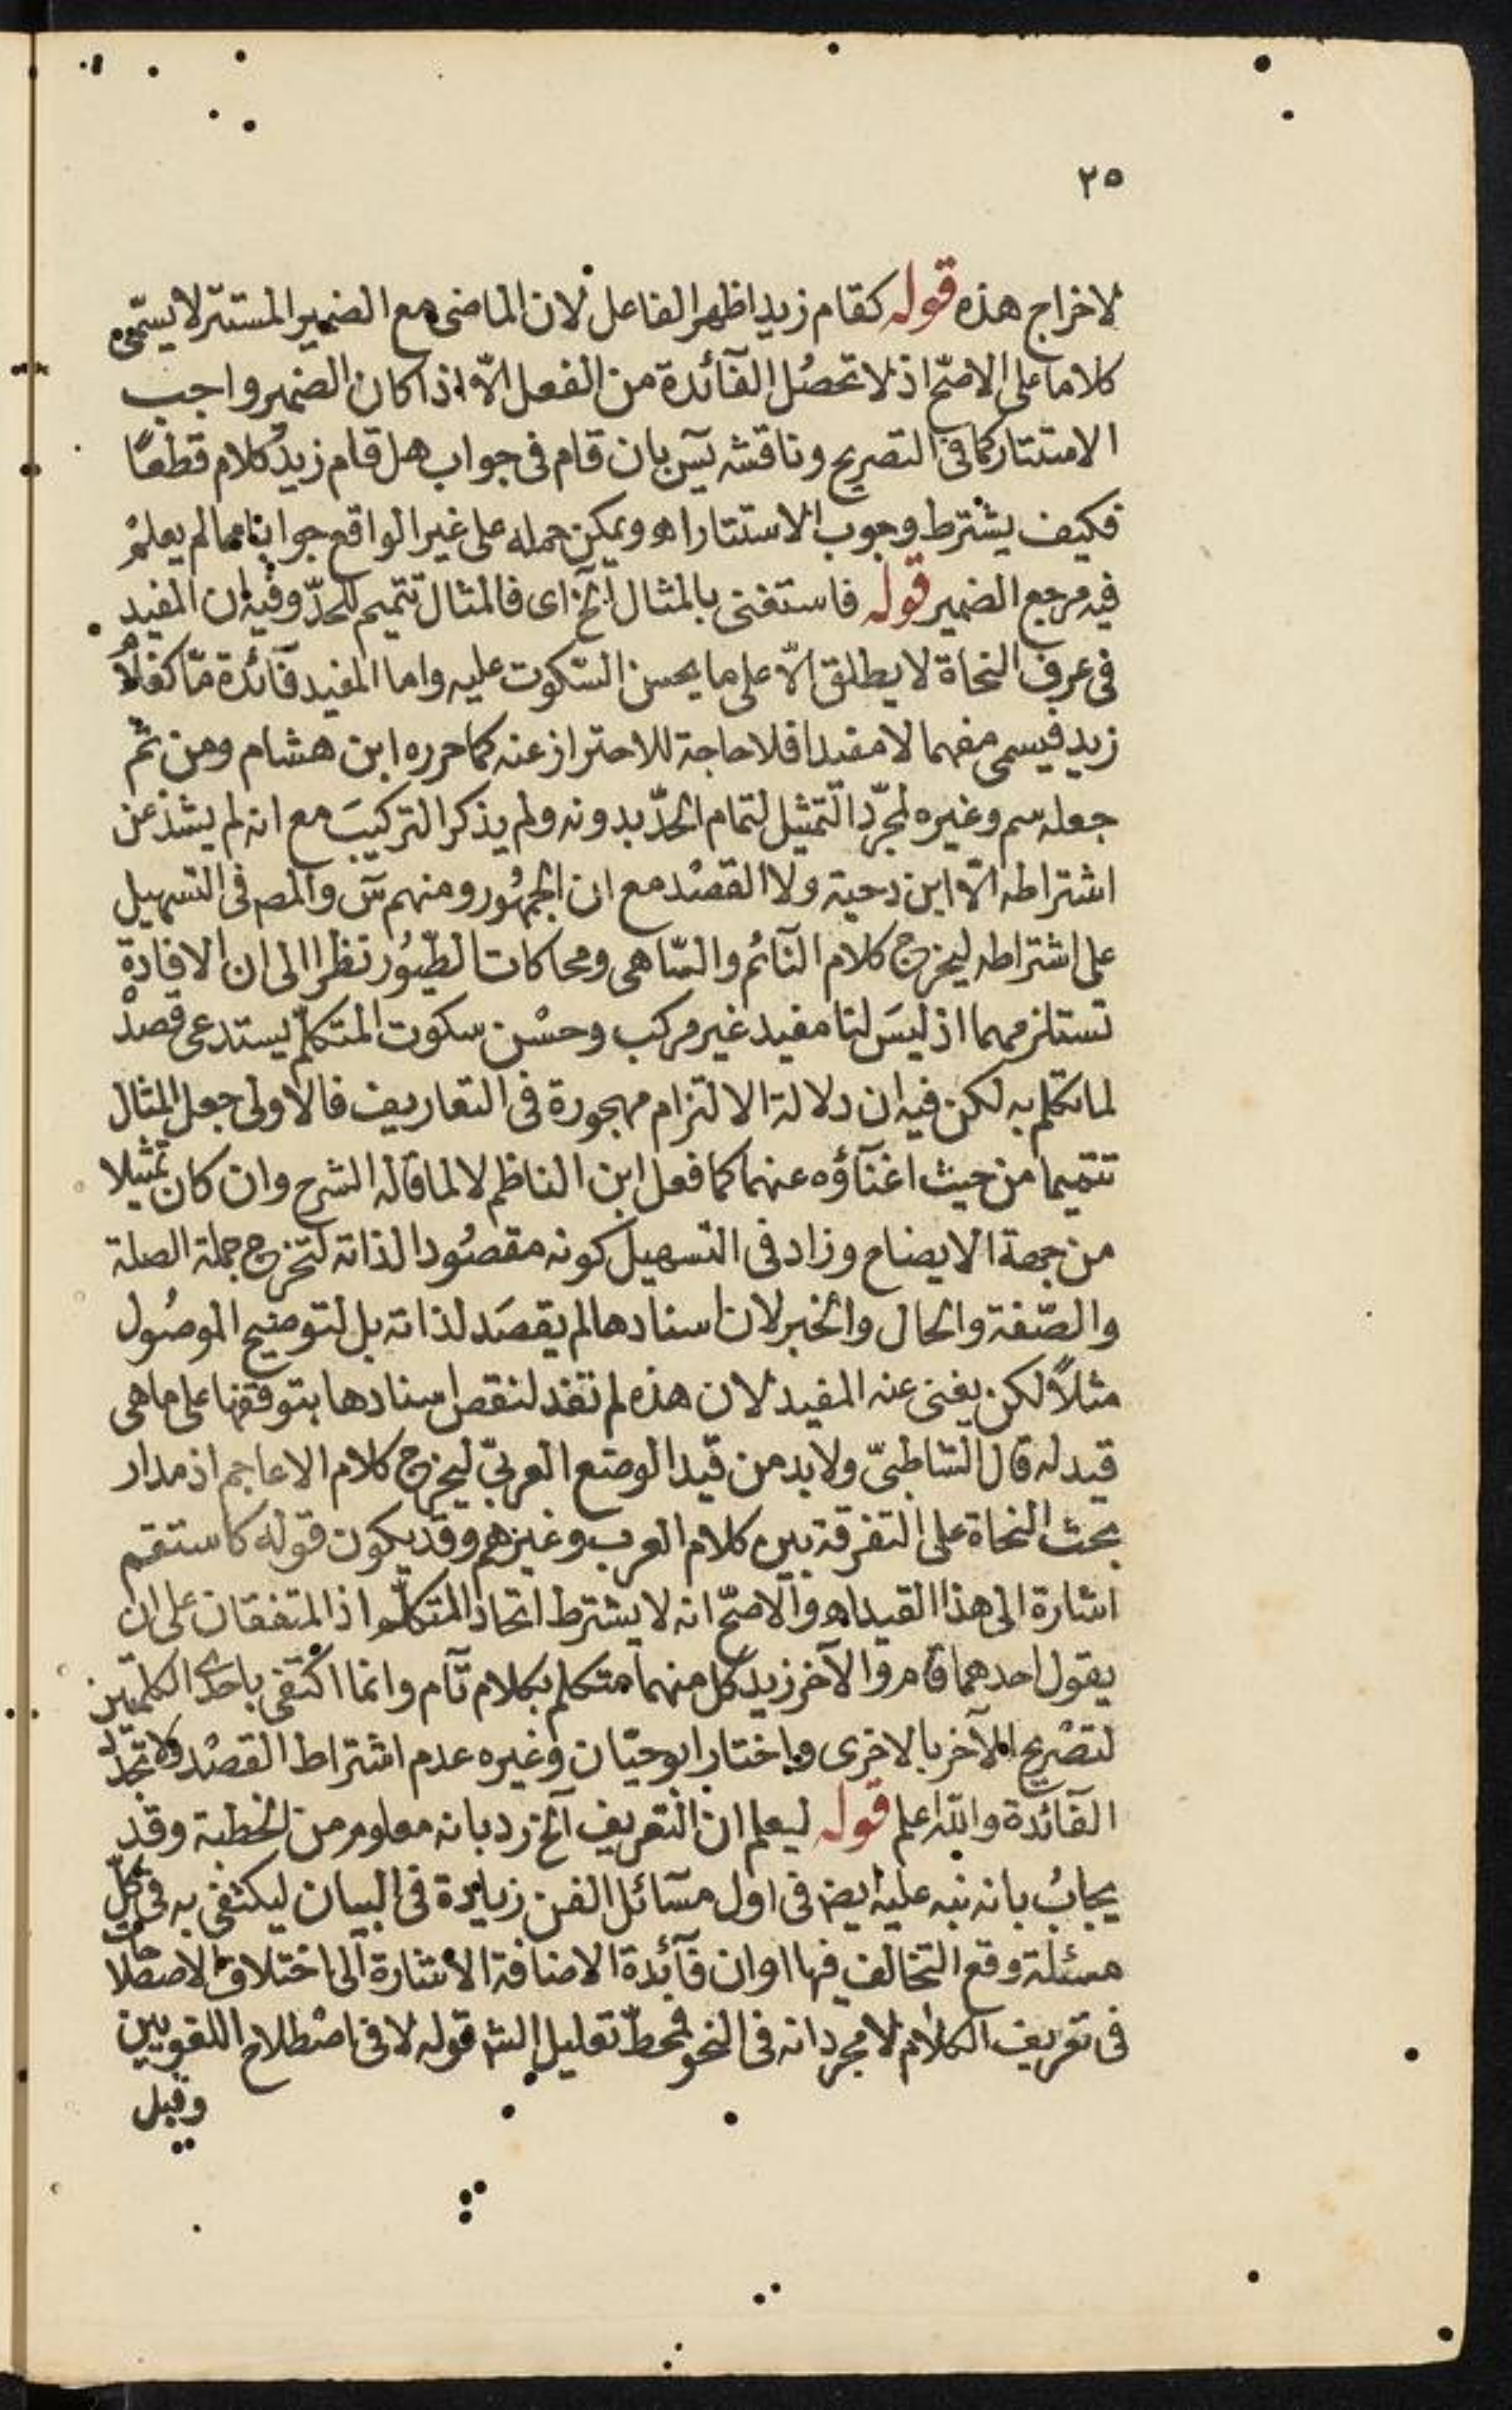 ٢٥
لاخراج هذه قوله كقام زيد اظهر الفاعل لان الماضى مع الضمير المستتر لا يسمّى
كلاما على الاصحّ اذ لا تحصُل الفآئدة من الفعل الّا اذا كان الضمير واجب
الاستتار كما فى التصريح وناقشه يسٓ بان قام فى جواب هل قام زيد كلام قطعًا
فكيف يشترط وجوب الاستتار اهـ ويمكن حمله على غير الواقع جوابا مما لم يعلم
فيه مرجع الضمير قوله فاستغنى بالمثال الخ اى فالمثال تتميم للحدّ وفيه ان المفيد
فى عرف النحاة لا يطلق الّا على ما يحسن السّكوت عليه واما المفيد فآئدة مّا كغلام
زيد فيسمى مفهما لا مفيدا فلا حاجة للاحتراز عنه كما حرره ابن هشام ومن ثم
جعله سم وغيره لمجرّد التمثيل لتمام الحدّ بدونه ولم يذكر التركيبَ مع انه لم يشذ عن
اشتراطه الّا ابن دحية ولا القصْد مع ان الجمهُور ومنهم سٓ والمصـ فى التسهيل
على اشتراطه ليخرج كلام النآئم والسّاهى ومحاكات الطّيُور نظرا الى ان الافادة
تستلزمهما اذ ليسَ لنا مفيد غير مركب وحسْن سكوت المتكلّم يستدعى قصدْ
لما تكلم به لكن فيه ان دلالة الالتزام مهجورة فى التعاريف فالاولى جعل المثال
تتميما من حيث اغنآؤه عنهما كما فعل ابن الناظم لا لما قاله الشرح وان كان تمثيلا
من جهة الايضاح وزاد فى التسهيل كونه مقصُودا لذاته لتخرج جملة الصلة
والصّفة والحال والخبر لان اسنادها لم يقصَد لذاته بل لتوضيح الموصُول
مثلاً لكن يغنى عنه المفيد لان هذه لم تفد لنقص اسنادها بتوقفها على ما هى
قيد له قال الشاطبىّ ولا بد من قيد الوضع العربىّ ليخرج كلام الاعاجم اذ مدار
بحث النحاة على التفرقة بين كلام العرب وغيرهم وقد يكون قوله كاستقم
اشارة الى هذا القيد اهـ والاصحّ انه لا يشترط اتحاد المتكلّم اذ المتفقان على ان
يقول احدهما قام والآخر زيد كل منهما متكلم بكلام تآم وانما اكْتفى باحدى الكلمتين
لتصْريح الآخر بالاخرى واختار ابو حيّان وغيره عدم اشتراط القصْد ولا تجدّد
الفآئدة والله اعلم قوله ليعلم ان التعريف الخ رد بانه معلوم من الخطبة وقد
يجابُ بانه نبه عليه ايضـ فى اول مسآئل الفن زيادة فى البيان ليكتفى به فى كلّ
مسئلة وقع التخالف فيها او ان فآئدة الاضافة الاشارة الى اختلاف الاصطلاحات
فى تعريف الكلام لا مجرد انه فى النحو فمحطّ تعليل الشـ قوله لا فى اصْطلاح اللغويين
وقيل